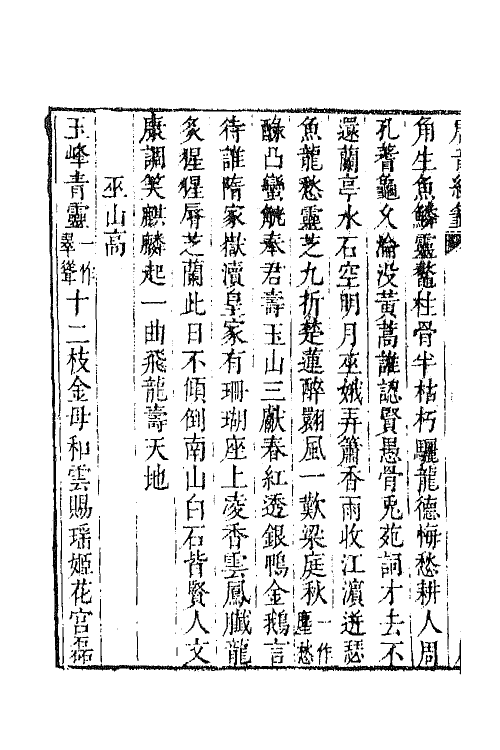 角生魚鱗靈鼇柱骨半枯朽驪龍德悔愁耕人周
孔蓍龜久淪没黃蒿誰認賢愚骨兎苑詞才去不
還蘭亭水石空明月巫娥弄簫香雨收江濵迸瑟
魚龍愁靈芝九折楚蓮醉翾風一歎梁庭秋一作塵愁
醁凸蠻觥奉君壽玉山三獻春紅透銀鴨金鵝言
待誰隋家嶽瀆皇家有珊瑚座上凌香雲鳳臘龍
炙猩猩脣芝蘭此日不傾倒南山白石皆賢人文
康調笑麒麟起一曲飛龍壽天地
巫山高
玉峰青靈一作翠聳十二枝金母和雲賜瑶姬花宮磊